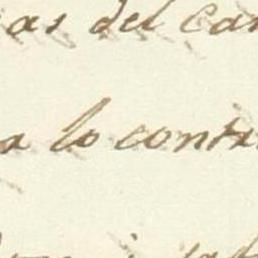 as del ca
a lo contr